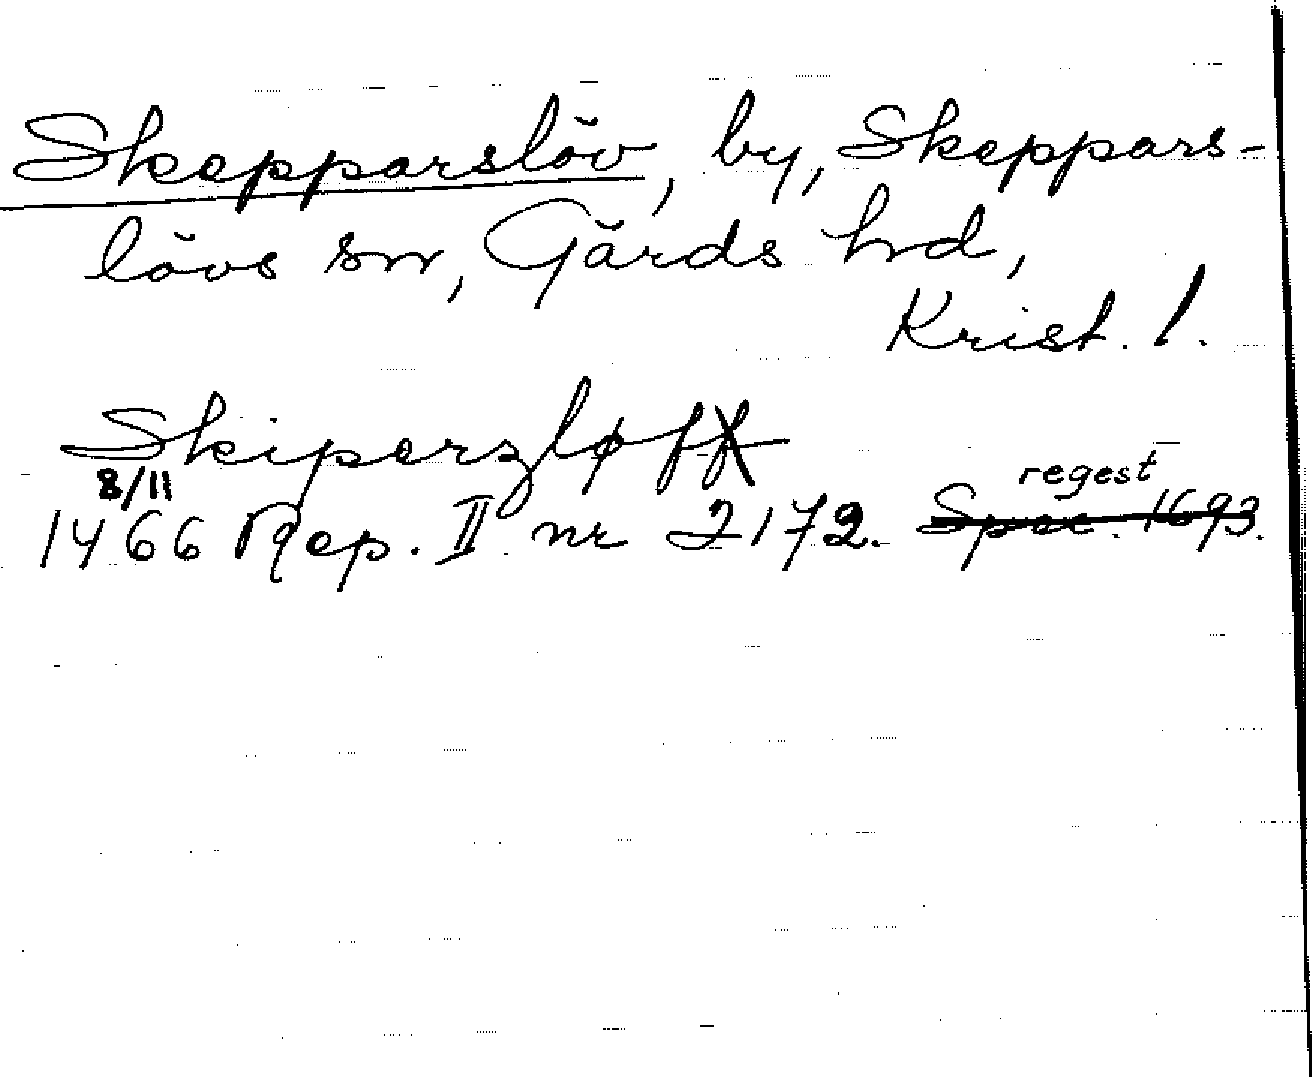 Skepparslöv, by, Skeppars-
lövs sn, Gärds hd,
Krist. l.
Skiperzløff
8/11
regest
1466 Rep. II nr 2172. Spec. 1693.